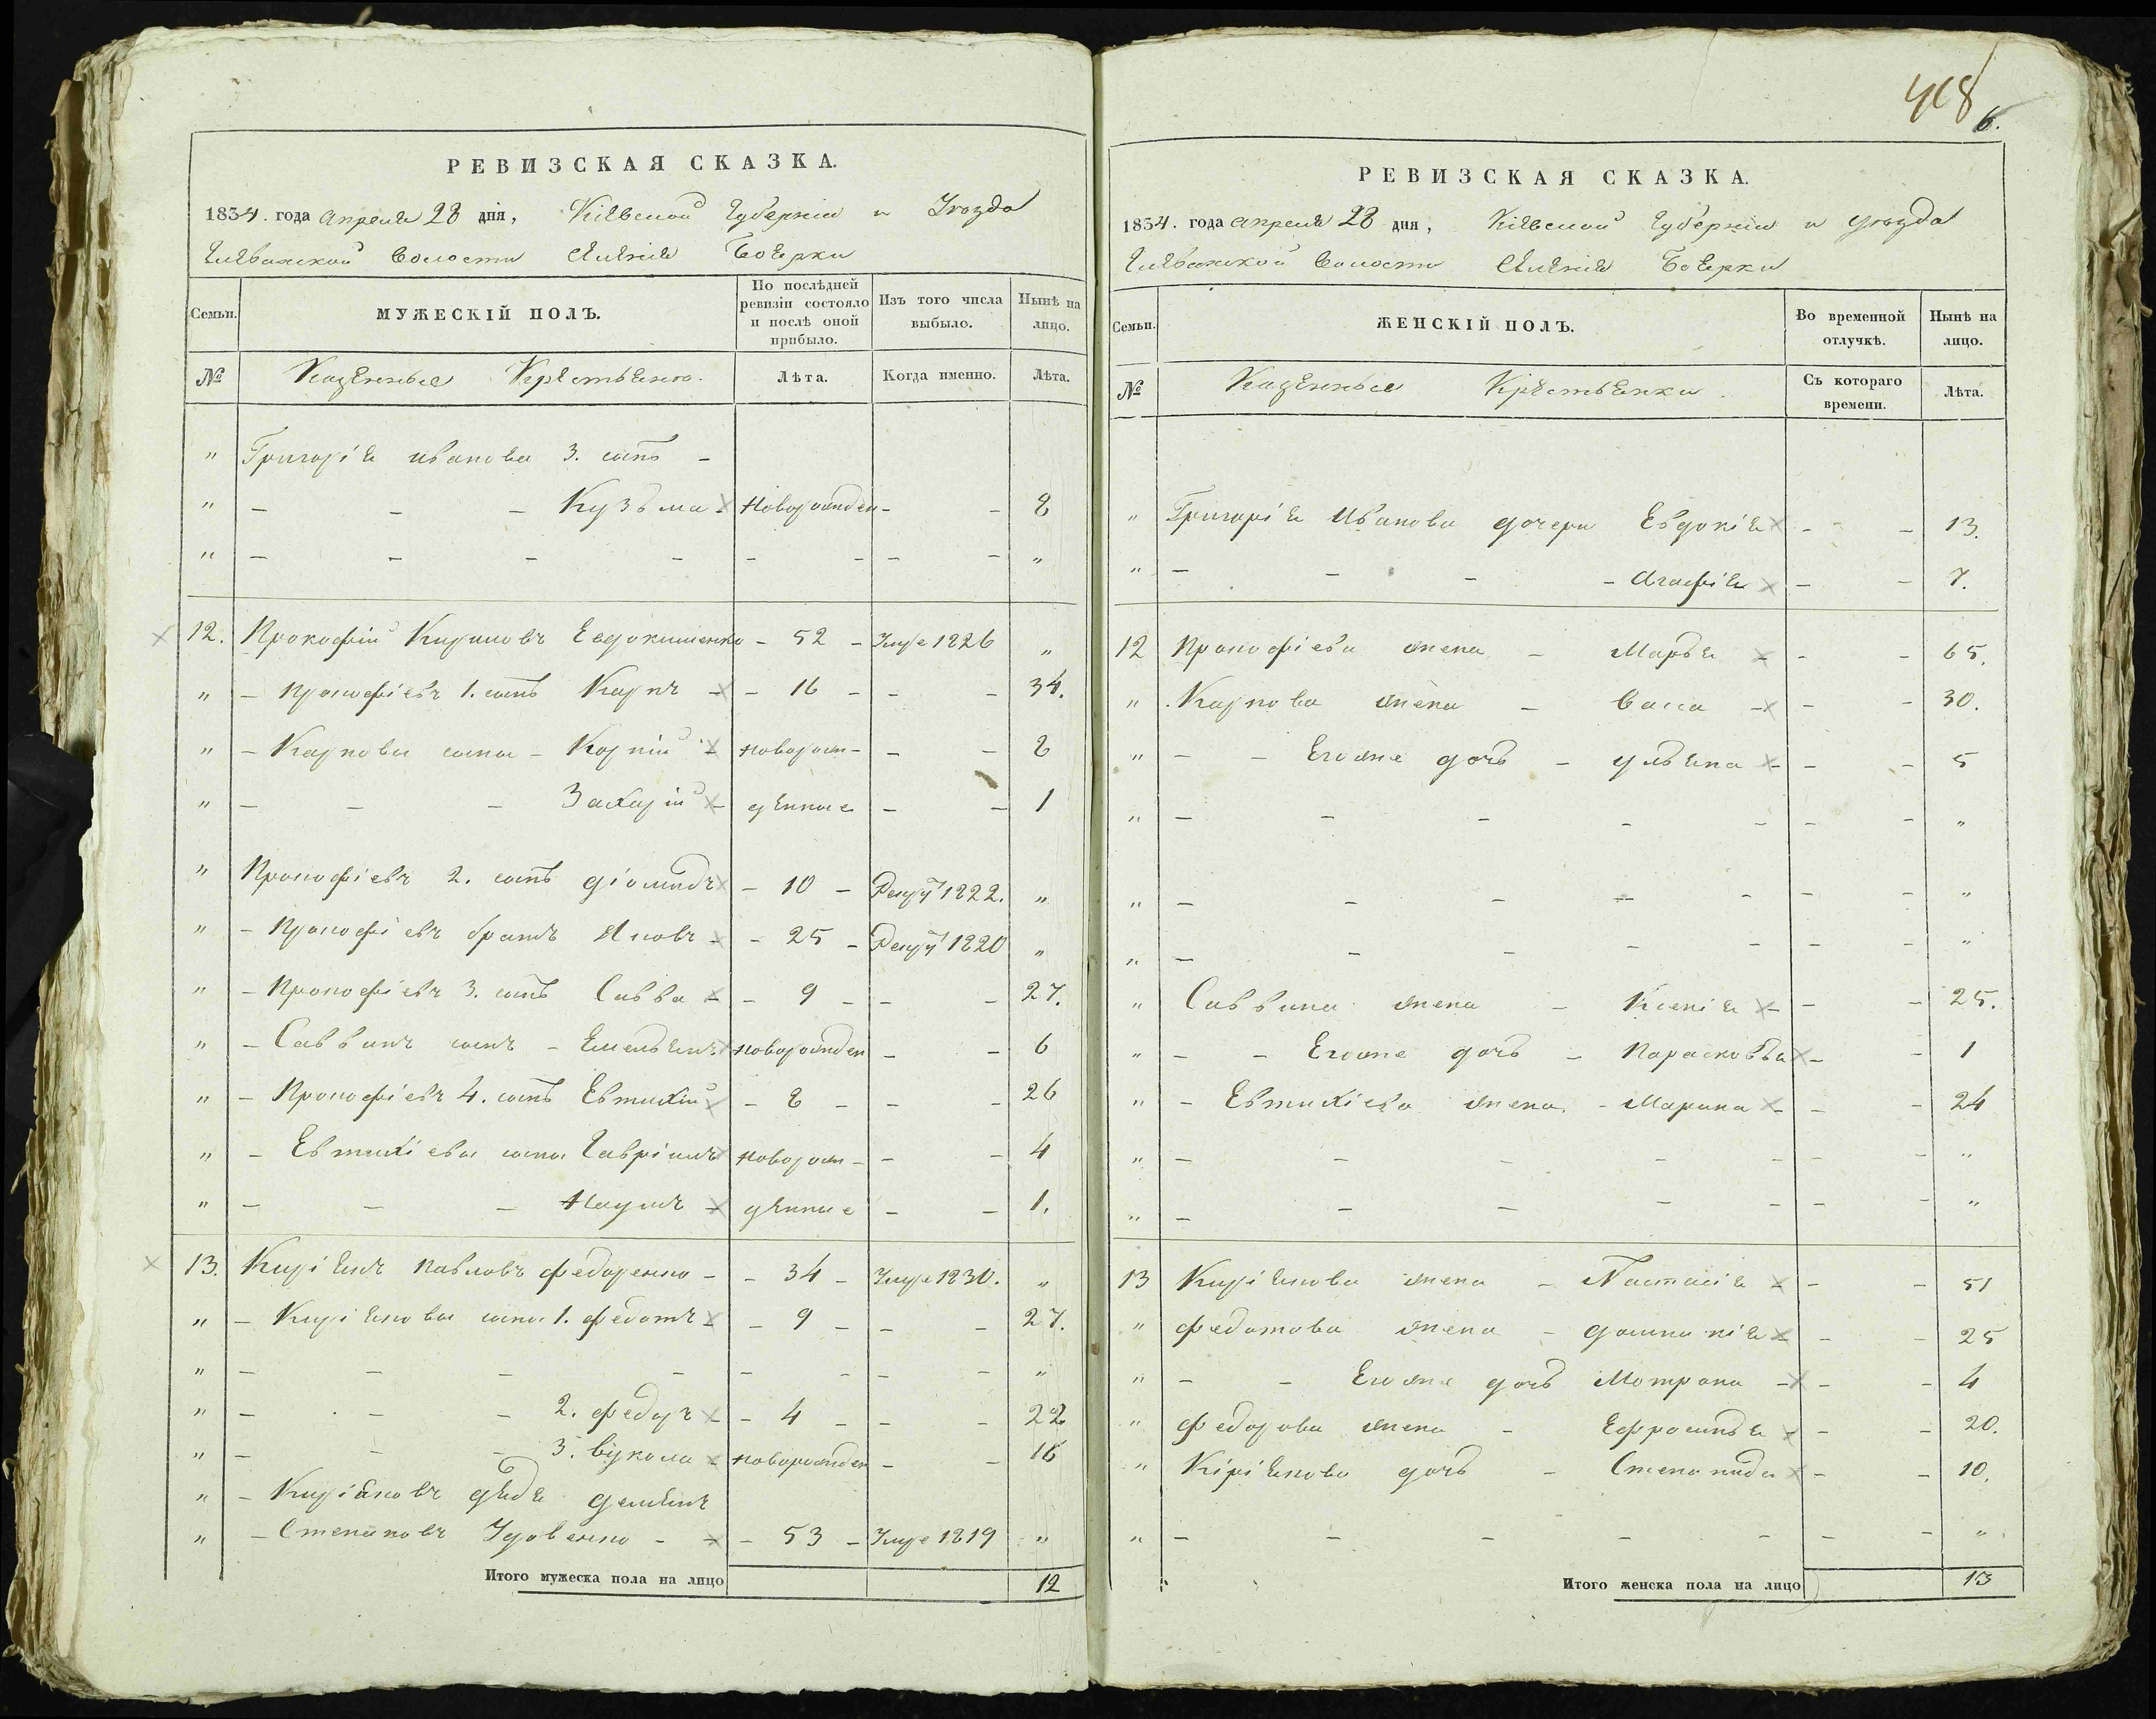 408
6.
РЕВИЗСКАЯ СКАЗКА.
1834. года Апреля 28 дня, Кіевской Губерніи и Уезда
Волости Селенія Боерки
Семьи. МУЖЕСКІЙ ПОЛЪ. По послѣдней ревизіи состояло и послѣ оной прибыло. Изъ того числа выбыло. Нынѣ на лицо.
№ Казенные Крестьяне. Лѣта. Когда именно. Лѣта.
" Григорія Иванова 3. сынъ -
" - - - Кузьма - новорожден - - 8
" - - - - - - - - "
12. Прокофій Кириловъ Евдокименко - 52 - Умре 1826 "
" - Прокофіевъ 1. сынъ Карпъ - - 16 - - - 34.
" - Карповы сыны - Корній - новорож - - - 8
" - - - Захарій - денные - - 1
" Прокофіевъ 2. сынъ Діомидъ - 10 - Рекрут 1822. "
" - Прокофіевъ братъ Яковъ - - 25 - Рекрут 1820 "
" - Прокофіевъ 3. сынъ Савва - - 9 - - - 27.
" - Саввинъ сынъ - Емельянъ новорожден - - 6
" - Прокофіевъ 4. сынъ Евтихій - 8 - - - 26
" - Евтихіевы сыны Гавріилъ новорож - - - 4
" - - - Наумъ - денные - - 1.
13. Киріянъ Павловъ Федоренко - - 34 - Умре 1830. "
" - Киріяновы сыны 1. Федотъ - - 9 - - - 27.
" - - - - - - - - "
" - - - 2. Федоръ - - 4 - - - 22
" - - - 3. Вукола - новорожден - - 16
" - Киріяновъ дядя Демянъ
" - Степановъ Удовенко - - - 53 - Умре 1819 "
Итого мужеска пола на лицо 12
РЕВИЗСКАЯ СКАЗКА.
1834. года Апреля 28 дня, Кіевской Губерніи и Уезда
Волости Селенія Боерки
Семьи. ЖЕНСКІЙ ПОЛЪ. Во временной отлучкѣ. Нынѣ на лицо.
№ Казенные Крестьянки. Съ котораго времени. Лѣта.
" Григорія Иванова дочери Евдокія - - 13.
" - - - - Агафія - - 7.
12 Прокофіева жена - Марья - - - 65.
" Карпова жена - Васса - - - 30.
" - - Егоже дочь - Ульяна - - - 5
" - - - - - - - "
" - - - - - - - "
" - - - - - - - "
" Саввина жена - Ксенія - - - 25.
" - - Егоже дочь - Парасковья - - 1
" - Евтихіева жена - Марина - - - 24
" - - - - - - - "
" - - - - - - - "
13 Киріянова жена - Настасія - - - 51
" Федотова жена - Домникія - - - 25
" - - Егоже дочь Мотрона - - - 4
" Федорова жена - Ефросинья - - 20.
" Кіріянова дочь - Степанида - - 10.
" - - - - - - - "
Итого женска пола на лицо 13